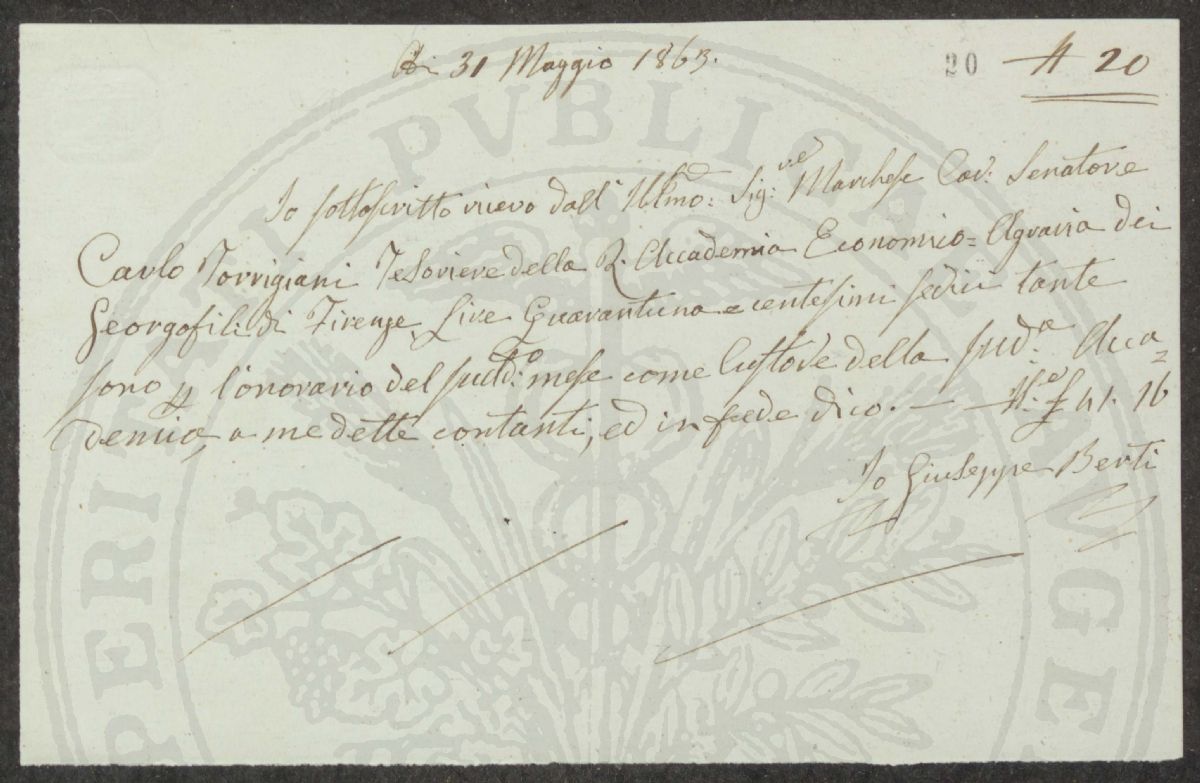 Adì 31 Maggio 1863.
20 N 20
Io sottoscritto ricevo dall' Illmo: Sig:re Marchese Cav: Senatore
Carlo Torrigiani Tesoriere della R. Accademia Economico=Agraria dei
Georgofili di Firenze, Lire Quarantuna e centesimi sedici tante
sono p l'onorario del sudd:o mese come Custode della sud:a Acca=
demia, a me dette contanti, ed in fede dico. — 41. 16
Io Giuseppe Berti
PERITATI PUBLICAE